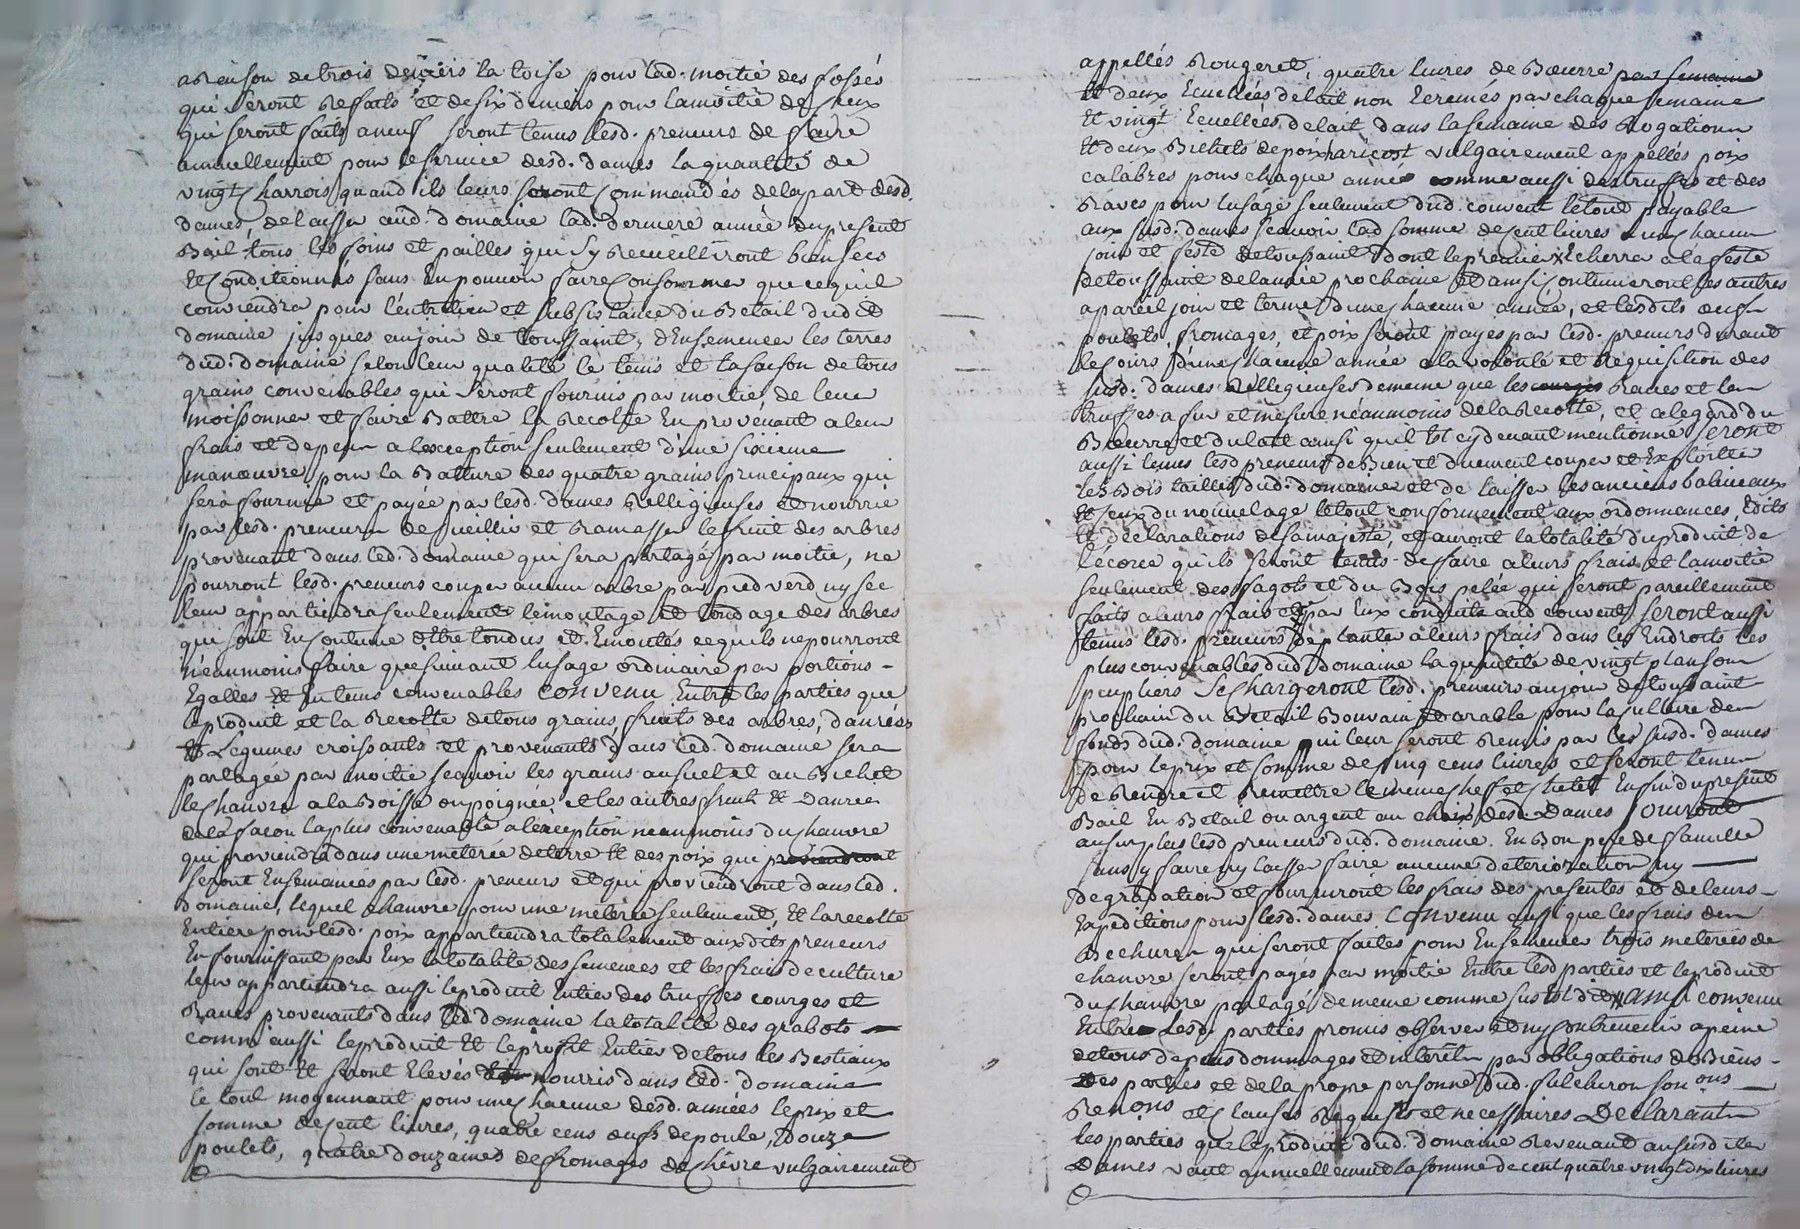 a raison de trois deniers la toise pour lad. moitié des fossés
qui seront refaits et de six deniers pour la moitié de ceux
qui seront faits a neuf seront tenus lesd. preneurs de faire
annuellement pour le service desd. dames la quantité de
vingt charrois quand ils leurs seront commandés de la part desd.
dames, de laisser aud. domaine lad. derniere année du present
Bail tous les foins et pailles qui s'y recueilliront bien secs
et conditionnés sans en pouvoir faire consommer que ce quil
conviendra pour l'entretien et subsistance du Betail dud
domaine jusques au jour de toussaint, d'Ensemencer les terres
dud. domaine selon leur qualité le tems et la saison de tous
grains convenables qui seront fournis par moitié, de leur
moissonner et faire Battre la recolte En provénant a leur
frais et depens a lexception seulement d'une sixieme
manœuvre pour la Batture des quatre grains principaux qui
sera fournie et payée par lesd. dames Relligieuses et nourrie
par lesd. preneurs de cueillir et ramasser le fruit des arbres
provenant dans led. domaine qui sera partagé par moitié, ne
pourront lesd. preneurs couper aucun arbre par pied verd ny sec
leur appartiendra seulement lémoutage et tondage des arbres
qui sont En coutume d'être tondus et Emoutés ce quils ne pourront
néanmoins faire que suivant lusage ordinaire par portions
Egalles Et En tems convenables convenu Entre les parties que
le produit et la recolte de tous grains fruits des arbres, danrées
et Legumes croissants et provenants dans led. domaine sera
partagée par moitié sçavoir les grains au
le chanvre a la Boisse ou poignée et les autres fruits Et Danrées
de la façon la plus convenable a lexception néanmoins du chanvre
qui proviendra dans une meterée de terre Et des poix qui proviendront
seront Ensemencés par lesd. preneurs et qui proviendront dans led.
domaine, lequel chanvre pour une meterée seulement, Et la recolte
Entiere pour lesd. poix appartiendra totalement auxdits preneurs
En fournissant par Eux la totalité des semences et les frais de culture
leur appartiendra aussi le produit Entier des truffes courges et
Raves provenants dans led domaine la totalité des grabots
comme aussi le produit Et le profit Entier de tous les Bestiaux
qui sont Et seront Elevés nourris dans led. domaine
le tout moyennant pour une chacune desd. années le prix et
somme de cent livres, quatre cens œufs de poule, Douze
poulets, quatre douzaines de fromages de chévre vulgairement
appellés Rougeret, quatre livres de Bœurre par semaine
Et deux Ecuellées de lait non Ecremés par chaque semaine
Et vingt Ecuellées de lait dans la semaine des Rogations
Et deux Bichets de poix haricost vulgairement appellés poix
calabres pour chaque année comme aussi des truffes et des
Raves pour lusage seulement dud. couvent le tout payable
aux susd. dames sçavoir lad somme de cent livres a un chacun
jour et feste de toussaint dont le premier Echerra a la feste
de toussaint de lannée prochaine Et ainsi continueront les autres
a pareil jour et terme d'une chacune année, et lesdits œufs
poulets, fromages, et poix seront payés par lesd. preneurs durant
le cours d'une chacune année a la volonté et Réquisition des
susd. dames Relligieuses de meme que les courges Raves et les
truffes a fur et mesure néanmoins de la Recolte, et a legard du
Bœurre et du lait ainsi quil Est cy devant mentionné seront
aussi tenus lesd preneurs de Bien et duement couper et Exploiter
les Bois taillis dud. domaine et de laisser les anciens baliveaux
Et ceux du nouvel age le tout conformement aux ordonnances, Edits
Et déclarations de sa majesté, et auront la totalité du produit de
l'écorce qu'ils seront tenus de faire a leurs frais et la moitié
seulement des fagots et du Bois pelée qui seront pareillement
faits a leurs frais et par Eux conduits aud couvent seront aussi
tenus lesd. preneurs de planter a leurs frais dans les Endroits les
plus convenables dud domaine la quantité de vingt plansons
peupliers se chargeront lesd. preneurs au jour de toussaint
prochain du Betail Bouvain et arable pour la culture des
fonds dud. domaine qui leur seront Remis par les susd. dames
pour le prix et somme de cinq cens livres et seront tenus
de rendre et remettre le meme chef et chetel En fin du present
Bail En Betail ou argent au choix desd Dames Jouiront
au surplus lesd preneurs dud. domaine En Bon pere de famille
sans y faire ny laisser faire aucune deterioration ny
degradation et fourniront les frais des presentes et de leurs
Expeditions pour lesd. dames convenu aussi que les frais des
Bechures qui seront faites pour Ensemencer trois meterées de
chanvre seront payés par moitié Entre lesd parties et le produit
du chanvre partagé de meme comme sus est dit ainsi convenu
Entre lesd. parties promis observer et ny contrevenir a peine
de tous depens dommages et interêts par obligations de Biens
des parties et de la propre personne dud.
Renons et clauses Requises et necessaires Declarants
les parties que le produit dud. domaine Revenant auxsusdites
Dames vaut annuellement la somme de cent quatre vingt dix livres